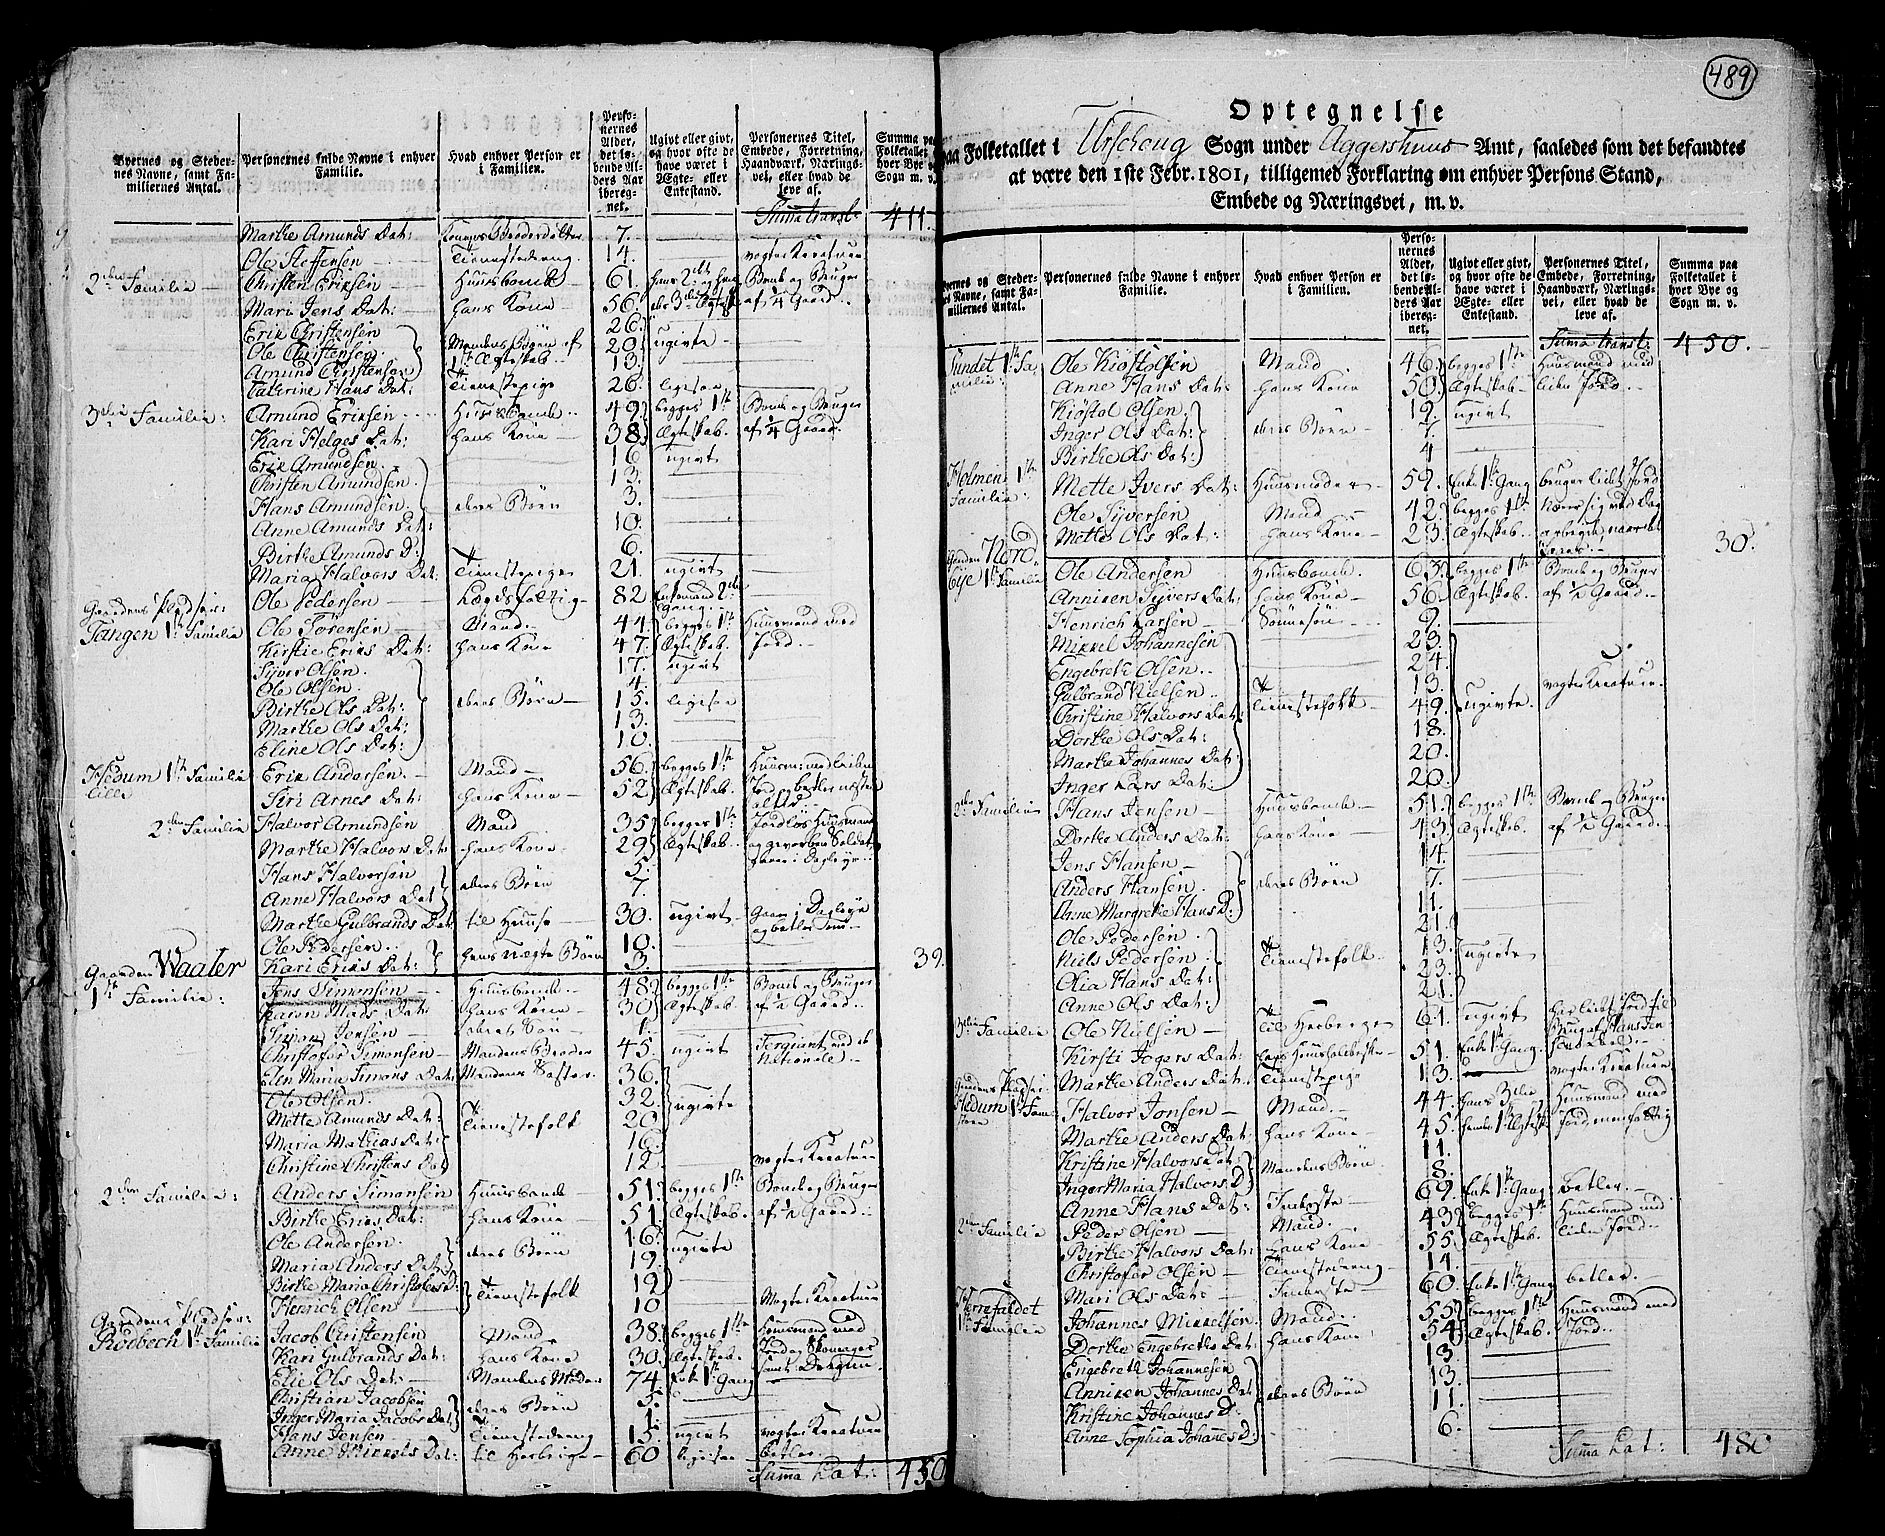 Byernes og Steder-
nes Navne, samt Fa-
miliernes Antal.
Personernes fulde Navne i enhver
Familie.
Hvad enhver Person er
i Familien.
Perso-
nernes
Alder,
det lø-
bende Al-
ders Aar
iberegnet.
Ugivt eller givt,
og hvor ofte de
have været i
Ægte- eller
Enkestand.
Personernes Titel,
Embede, Forretning,
Haandværk, Nærings-
vei, eller hvad de
leve af.
Summa paa
Folketallet i
hver Bye og
Sogn m. v.
Summa transl: 411.
Marthe Amunds Dat: 7.
Ole Steffensen Tienestedreng 14. vogter Kreature
2den Familie Christen Eriksen Huusbonde 61. Bonde og Bruger
Mari Jens Dat: hans Kone 56 af 1/4 Gaard.
Erik Christensen 26.
Ole Christensen Mandens Børn af 20. ugivte
Amund Christensen 1ste Ægteskab 13.
Caterine Hans Dat: Tienestepige 26. ligesaa
3die Familie: Amund Eriksen Huusbonde 49. begges 1ste Bonde og Bruger
Kari Helges Dat: hans Kone 38. Ægteskab. af 1/4 Gaard.
Erik Amundsen 16 ugivt
Christen Amundsen 13.
Hans Amundsen deres Børn 3.
Anne Amunds Dat: 10.
Birthe Amunds D: 6.
Maria Halvors Dat: Tienestepige 21. ugivt
Gaardens Pladser: Ole Pedersen Lægdsfattig 82 Enkemand 2den Gang.
Tangen 1ste Familie Ole Sørensen Mand 44. begges 1ste Huusmand med
Kirstie Eriks Dat: hans Kone 47. Ægteskab. Jord.
Syver Olsen 17. ugivt
Ole Olsen. 4.
Birthe Ols Dat: deres Børn 15. ligesaa
Marthe Ols Dat: 13.
Eline Ols Dat: 10.
Hedum 1ste Familie Erik Andersen. Mand 56. begges 1ste
lille Siri Arnes Dat: hans Kone 52. Ægteskab.
2den Familie Halvor Amundsen Mand 35. begges 1ste Jordløs Huusmand
Marthe Halvors Dat hans Kone 29. Ægteskab. og gevorben Soldat
Hans Halvorsen deres Børn 5.
Anne Halvors Dat 7.
Marthe Gulbrands Dat til Huuse 30. ugivt
Ole Pedersen hendes Uægte Børn 10.
Kari Eriks Dat: 3. 39.
Gaarden Waaler
1ste Familie: Jens Simonsen Huusbonde 48. begges 1ste Bonde og Bruger
Karen Mads Dat: hans Kone 30. Ægteskab. af 1/2 Gaard.
Simon Jensen deres Søn 1.
Christofer Simonsen Mandens Broder 45. ugivt Sergiant
Elen Maria Simons Dat: Mandens Søster. 36.
Ole Olsen. 32.
Mette Amunds Dat: Tienestefolk 20. ugivte
Maria Mathias Dat: 16.
Christine Christens Dat 12. vogter Kreature
2den Familie: Anders Simonsen Huusbonde 51. begges 1ste Bonde og Bruger
Birthe Eriks Dat: hans Kone 51. Ægteskab. af 1/2 Gaard.
Ole Andersen. deres Børn 16. ugivte
Maria Anders Dat: 19.
Birthe Maria Christofers D: Tienestefolk 12
Henrich Olsen 10 Vogter Kreature
Gaardens Pladser:
Rødbech 1ste Familie Jacob Christensen Mand 38. begges 1ste Huusmand med
Kari Gulbrands Dat: hans Kone 30. Ægteskab. Jord og Skomager
Elie Ols Dat: Mandens Moder 74. Enke 1ste Gang
Christian Jacobsen deres Børn 5.
Inger Maria Jacobs Dat 1.
Hans Jensen Tienestedreng 15. ugivt vogter Kreature
Anne Mikkels Dat: til Herberge 60 ligesaa betler.
Summa Lat: 450
489
Optegnelse
paa Folketallet i Urschoug Sogn under Aggershuus Amt, saaledes som det befandtes
at være den 1ste Febr. 1801, tilligemed Forklaring om enhver Persons Stand,
Embede og Næringsvei, m. v.
Byernes og Steder-
nes Navne, samt Fa-
miliernes Antal.
Personernes fulde Navne i enhver
Familie.
Hvad enhver Person er
i Familien.
Perso-
nernes
Alder,
det lø-
bende Al-
ders Aar
iberegnet.
Ugivt eller givt,
og hvor ofte de
have været i
Ægte- eller
Enkestand.
Personernes Titel,
Embede, Forretning,
Haandværk, Nærings-
vei, eller hvad de
leve af.
Summa paa
Folketallet i
hver Bye og
Sogn m. v.
Summa transl: 450.
Sundet 1ste Fa- Ole Kiøstolsen Mand 46. begges 1ste Huusmand med
milie: Anne Hans Dat: hans Kone 50. Ægteskab liden Jord.
Kiøstol Olsen 12. ugivt
Inger Ols Dat: deres Børn 7.
Birthe Ols Dat: 4
Holmen 1ste
Familie: Mette Ivers Dat: Huusmoder 52. Enke 1ste Gang bruger lidt Jord
Ole Syversen Mand 42. begges 1ste
Mette Ols Dat: hans Kone 23. Ægteskab. 30.
Gaarden Nord
Eye 1ste Familie Ole Andersen Huusbonde. 63. begges 1ste Bonde og Bruger
Anniken Syvers Dat: hans Kone 56. Ægteskab. af 1/2 Gaard.
Henrich Larsen Sønnesøn 9.
Mikkel Johannesen 23.
Engebreth Olsen 24.
Gulbrand Nielsen 13. vogter Kreature.
Christine Halvors Dat: Tienestefolk 49. ugivte
Dorthe Ols Dat: 18.
Marthe Johannes Dat: 20.
Inger Lars Dat: 20.
2den Familie Hans Jensen Huusbonde 51. begges 1ste Bonde og Bruger
Dorthe Anders Dat: hans Kone 43. Ægteskab. af 1/2 Gaard.
Jens Hansen 14.
Anders Hansen deres Børn 7.
Anne Margrethe Hans D: 11.
Ole Pedersen 21.
Niels Pedersen Tienestefolk 13. ugivte
Olia Hans Dat: 23.
Anne Ols Dat: 21.
3die Familie Ole Nielsen til Herberge 61. ugivt
Kirsti Jogers Dat: 51. Enke 1ste Gang.
Marthe Anders Dat: Tienestepige 13. vogter Kreature
Gaardens Pladser
Hedum 1ste Fam: Halvor Jonsen Mand. 44. hans 3die Huusmand med
store Marthe Anders Dat: hans Kone 45. hendes 1ste Ægtesk Jord, men fattig
Kristine Halvors Dat: Mandens Børn. 11.
Inger Maria Halvors D: 8.
Anne Hans Dat: Inderste 69. Enke 1ste Gang betler.
2den Familie Peder Olsen Mand. 43. begges 1ste Huusmand med
Birthe Halvors Dat: hans Kone 55. Ægteskab. liden Jord.
Christofer Olsen Tienestedreng 14.
Mari Ols Dat: Inderste 60. Enke 1ste Gang betler.
Herrefaldet
1ste Familie Johannes Mikkelsen Mand. 55. begges 1ste Huusmand med
Dorthe Engebreths Dat: hans Kone 54. Ægteskab. Jord.
Engebreth Johannesen 13.
Anniken Johannes Dat deres Børn 13.
Kristine Johannes D: 11.
Anne Sophia Johannes D: 6.
Summa Lat: 480